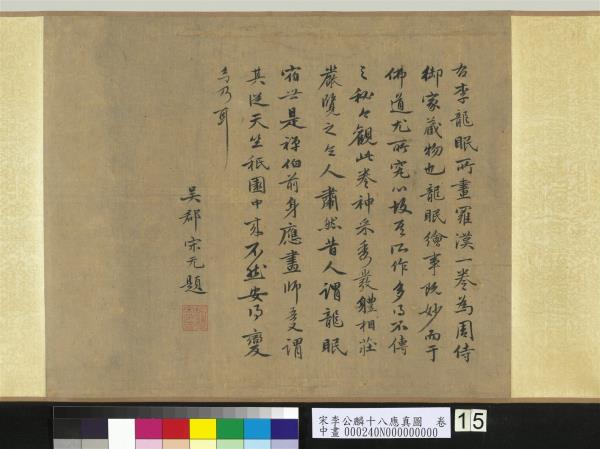 右李龍眠所畫羅漢一卷為周侍
御家藏物也龍眠繪事既妙而于
佛道尤所究心故其所作多得不傳
之秘今觀此卷神采秀發體相莊
嚴覽之令人肅然昔人謂龍眠
宿世是禪伯前身應畫師吾謂
其從天竺祇園中來不然安得變
乃耳
吳郡宗元題
宋李公麟十八應真圖 卷
中畫000240N000000000
15